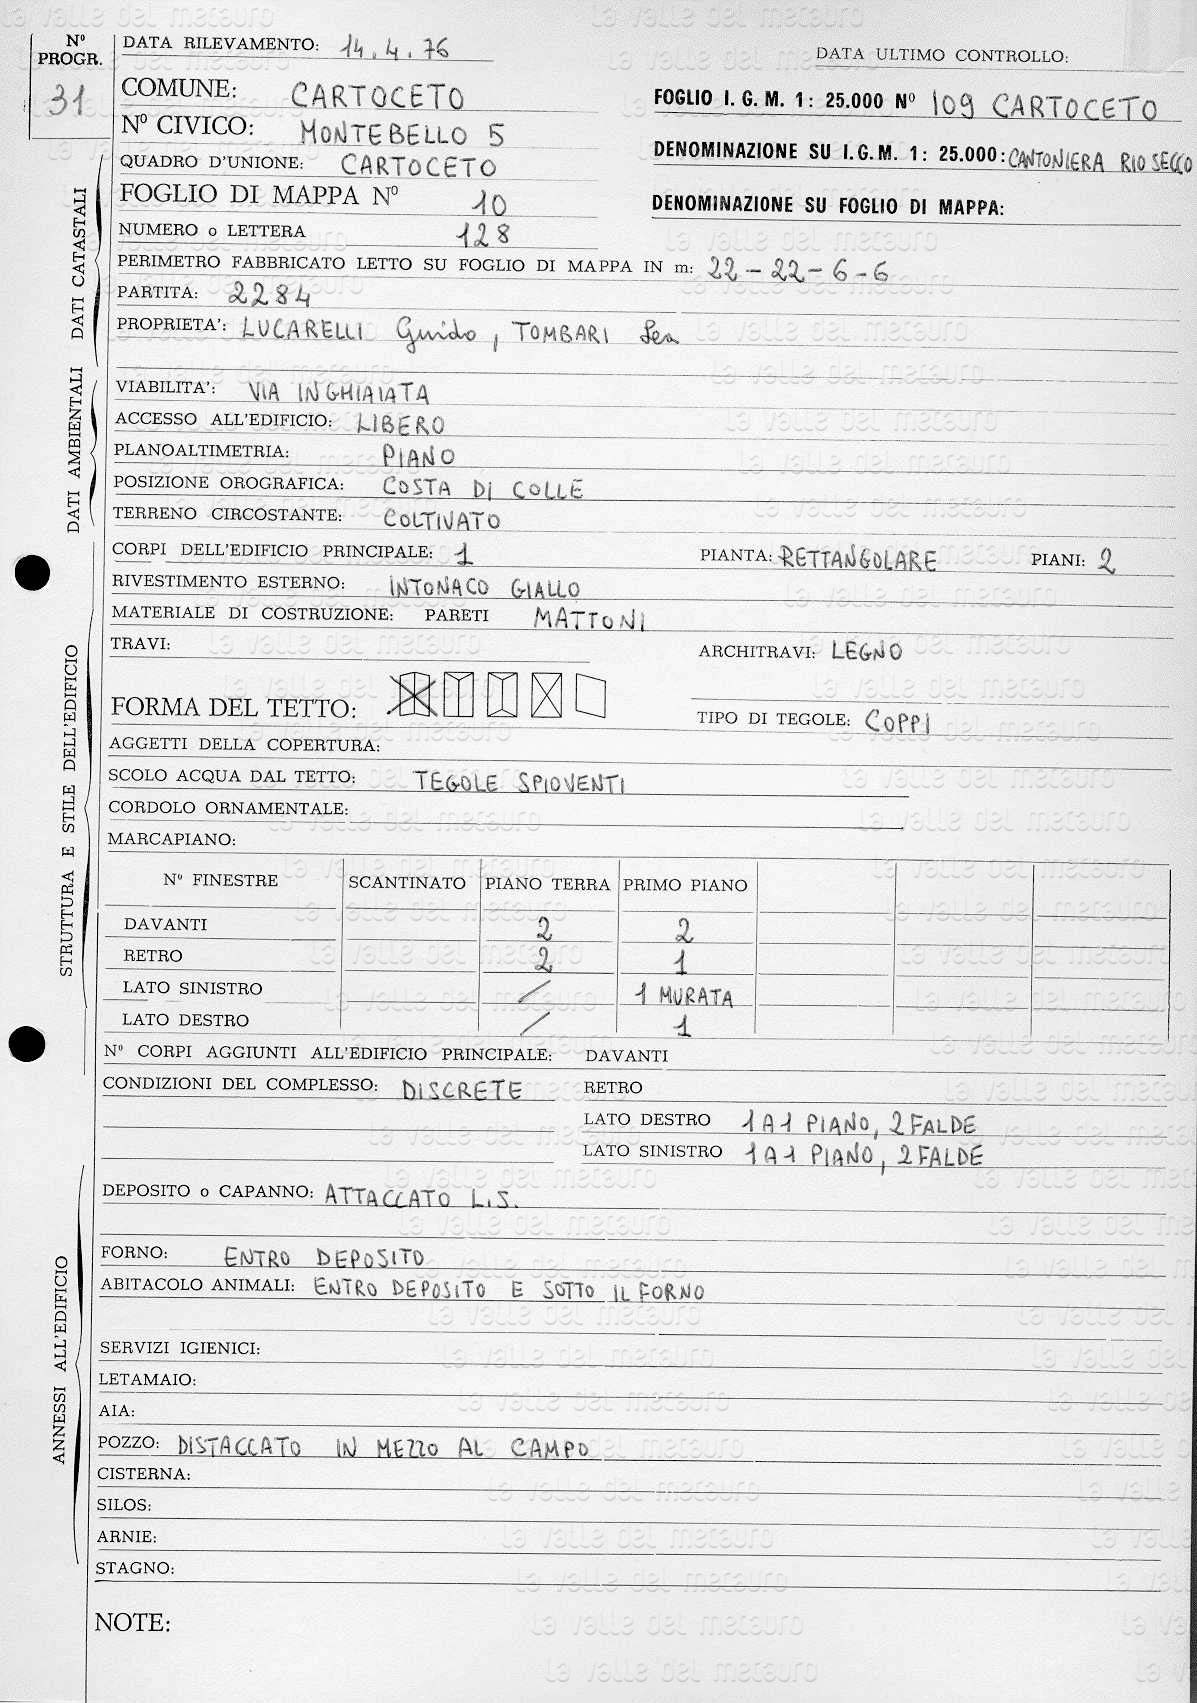 Nº PROGR.
31
DATA RILEVAMENTO: 14.4.76
DATA ULTIMO CONTROLLO:
COMUNE: CARTOCETO
FOGLIO I.G.M. 1: 25.000 Nº 109 CARTOCETO
Nº CIVICO: MONTEBELLO 5
DENOMINAZIONE SU I.G.M. 1: 25.000: CANTONIERA RIO SECCO
QUADRO D'UNIONE: CARTOCETO
FOGLIO DI MAPPA Nº 10
DENOMINAZIONE SU FOGLIO DI MAPPA:
NUMERO o LETTERA 128
PERIMETRO FABBRICATO LETTO SU FOGLIO DI MAPPA IN m: 22-22-6-6
PARTITA: 2284
PROPRIETA': LUCARELLI Guido, TOMBARI Lea
DATI CATASTALI
VIABILITA': VIA INGHIAIATA
ACCESSO ALL'EDIFICIO: LIBERO
PLANOALTIMETRIA: PIANO
POSIZIONE OROGRAFICA: COSTA DI COLLE
TERRENO CIRCOSTANTE: COLTIVATO
DATI AMBIENTALI
CORPI DELL'EDIFICIO PRINCIPALE: 1 PIANTA: RETTANGOLARE PIANI: 2
RIVESTIMENTO ESTERNO: INTONACO GIALLO
MATERIALE DI COSTRUZIONE: PARETI MATTONI
TRAVI: ARCHITRAVI: LEGNO
FORMA DEL TETTO: TIPO DI TEGOLE: COPPI
AGGETTI DELLA COPERTURA:
SCOLO ACQUA DAL TETTO: TEGOLE SPIOVENTI
CORDOLO ORNAMENTALE:
MARCAPIANO:
Nº FINESTRE SCANTINATO PIANO TERRA PRIMO PIANO
DAVANTI 2 2
RETRO 2 1
LATO SINISTRO / 1 MURATA
LATO DESTRO / 1
STRUTTURA E STILE DELL'EDIFICIO
Nº CORPI AGGIUNTI ALL'EDIFICIO PRINCIPALE: DAVANTI
CONDIZIONI DEL COMPLESSO: DISCRETE RETRO
LATO DESTRO 1 A 1 PIANO, 2 FALDE
LATO SINISTRO 1 A 1 PIANO, 2 FALDE
DEPOSITO o CAPANNO: ATTACCATO L.S.
FORNO: ENTRO DEPOSITO
ABITACOLO ANIMALI: ENTRO DEPOSITO E SOTTO IL FORNO
SERVIZI IGIENICI:
LETAMAIO:
AIA:
POZZO: DISTACCATO IN MEZZO AL CAMPO
CISTERNA:
SILOS:
ARNIE:
STAGNO:
ANNESSI ALL'EDIFICIO
NOTE:
la valle del metauro